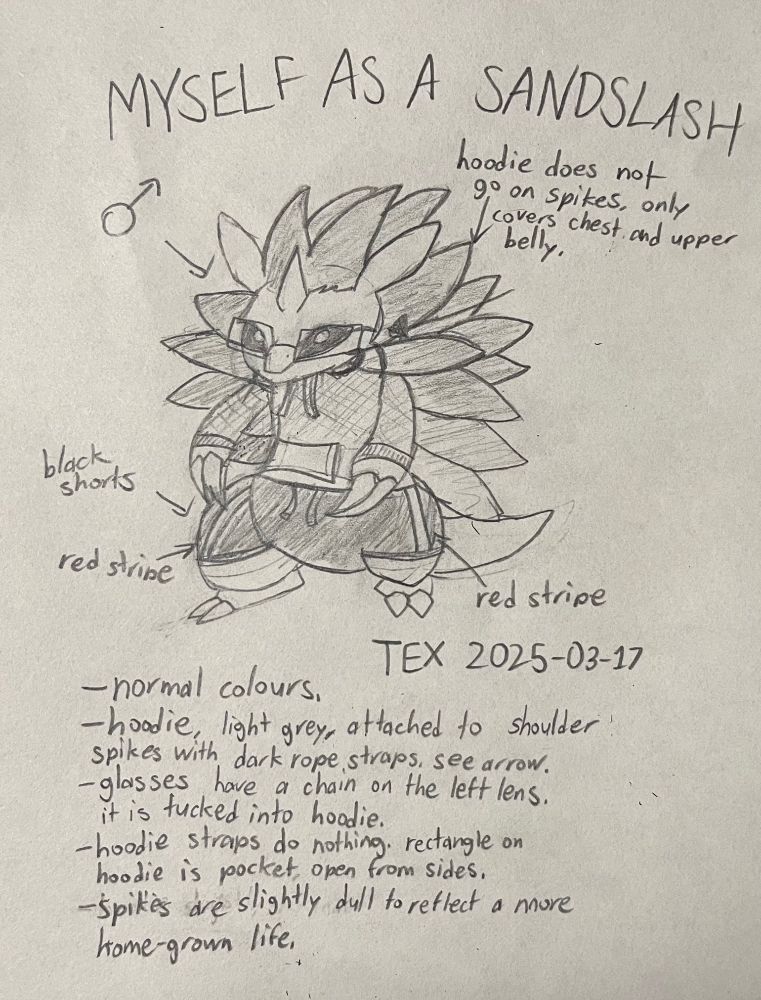 MYSELF AS A SANDSLASH
♂
hoodie does not
go on spikes, only
covers chest and upper
belly.
black
shorts
red stripe
red stripe
TEX 2025-03-17
-normal colours.
-hoodie, light grey, attached to shoulder
spikes with dark rope straps. see arrow.
-glasses have a chain on the left lens.
it is tucked into hoodie.
-hoodie straps do nothing. rectangle on
hoodie is pocket, open from sides.
-spikes are slightly dull to reflect a more
home-grown life.